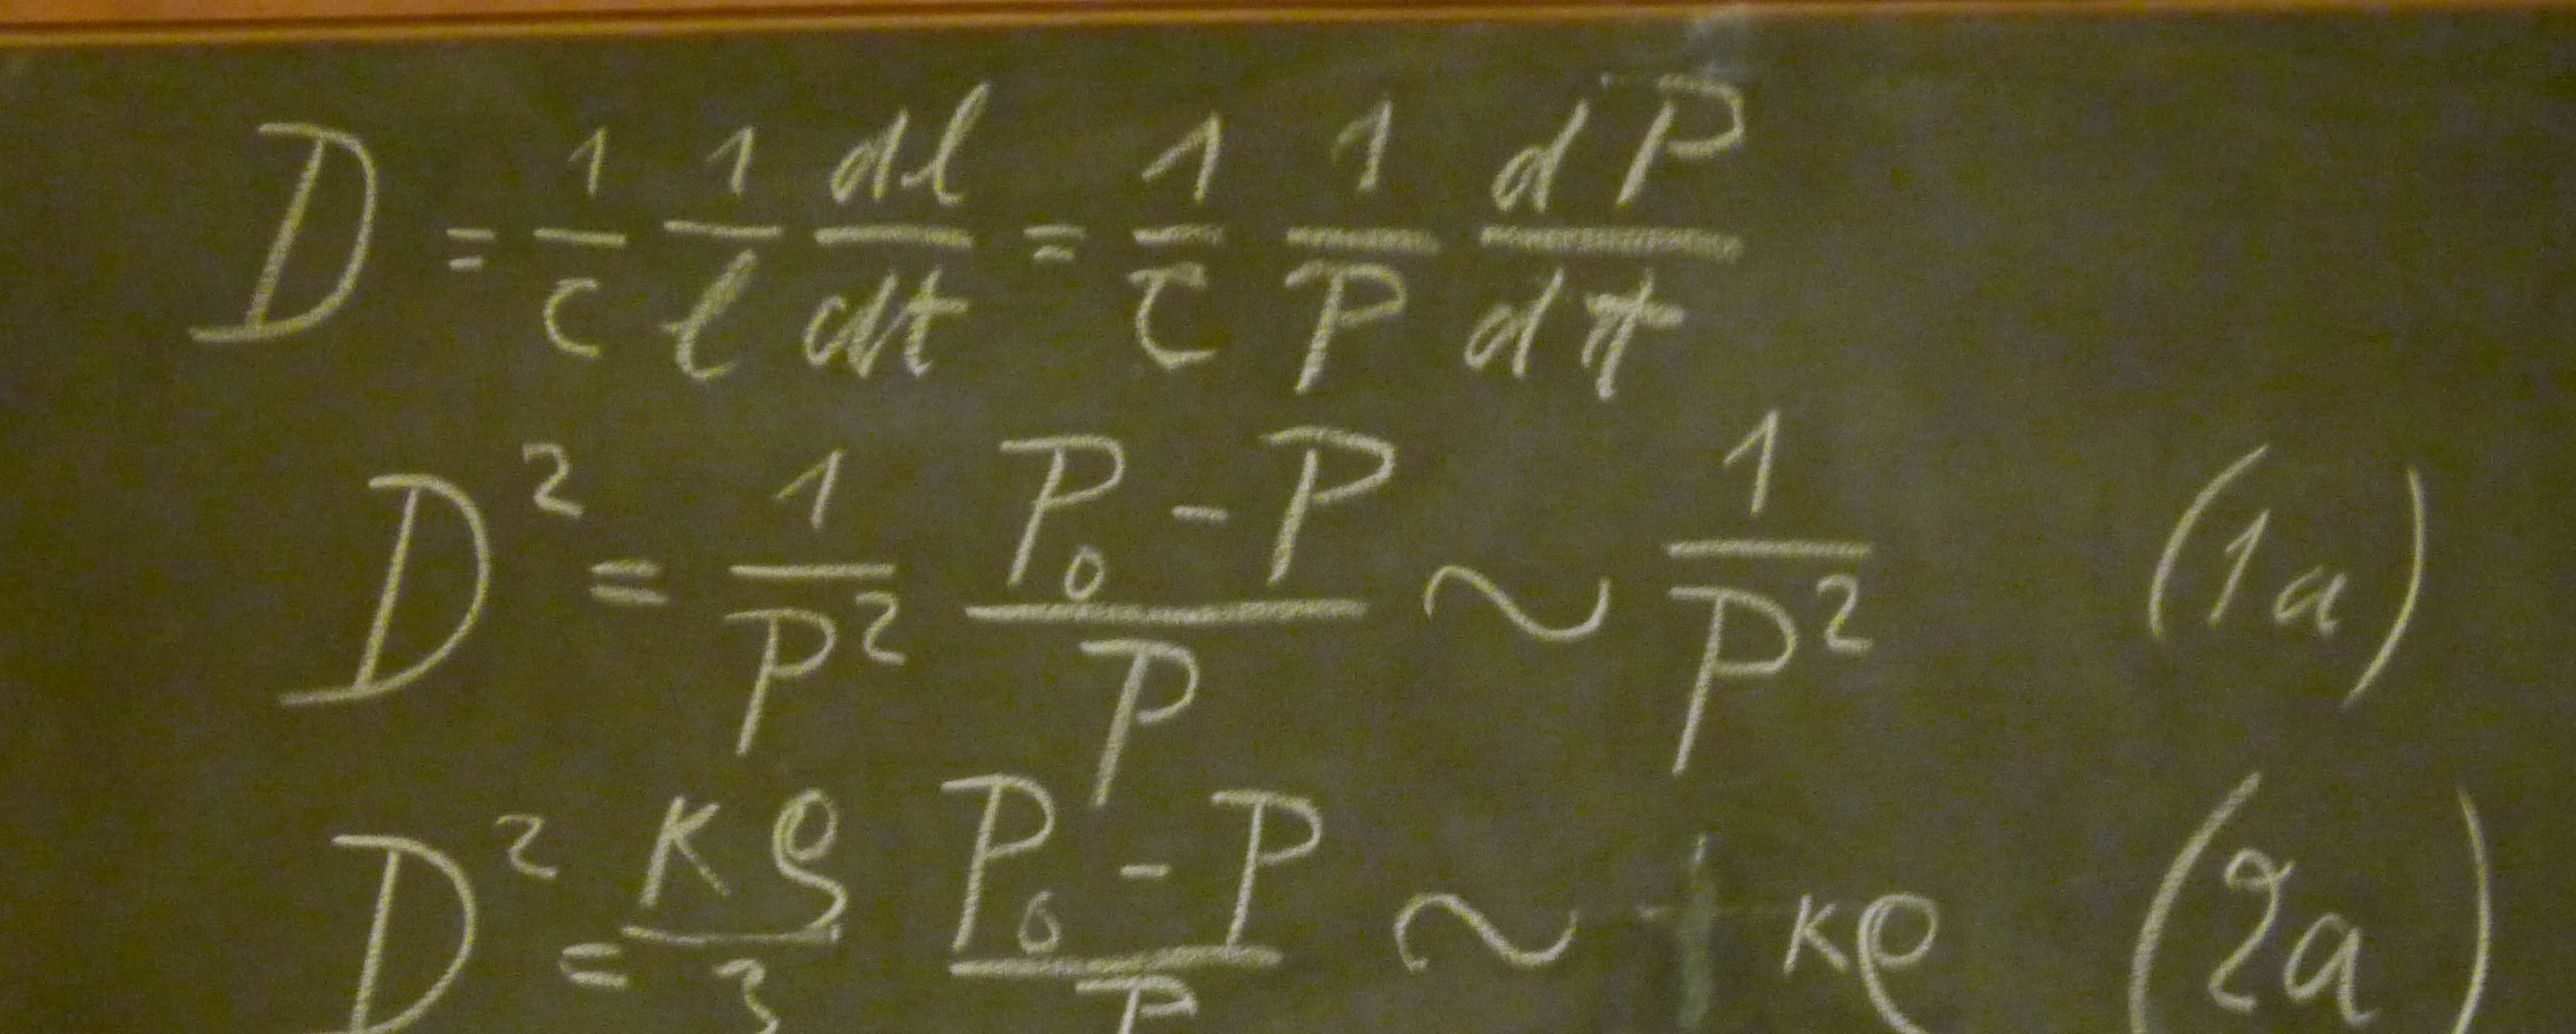 D = 1/c 1/l dl/dt = 1/c 1/P dP/dt
D² = 1/P² P₀-P/P ~ 1/P² (1a)
D² = κρ/3 P₀-P/P ~ κρ (2a)